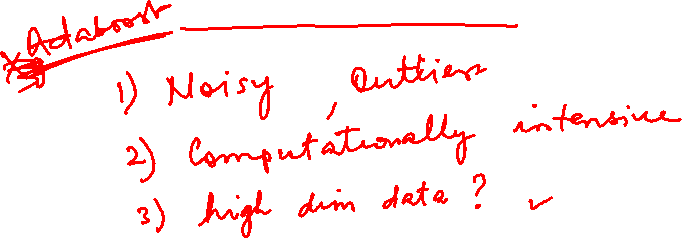 Adaboost
1) Noisy, Outliers
2) Computationally intensive
3) high dim data ? ✓